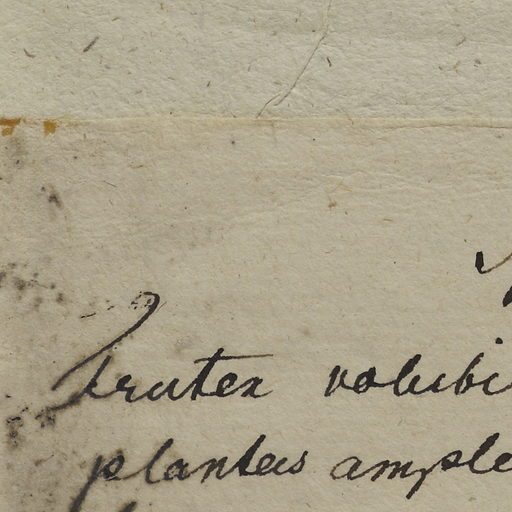 Frutex volubi
plantas ample